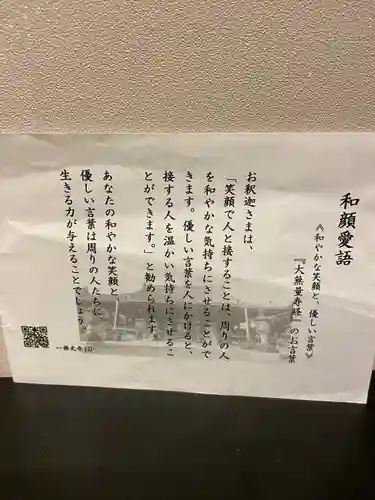 和顔愛語
《和やかな笑顔と、優しい言葉》
『大無量寿経』のお言葉
お釈迦さまは、
「笑顔で人と接することは、周りの人
を和やかな気持ちにさせることがで
きます。優しい言葉を人にかけると、
接する人を温かい気持ちにさせるこ
とができます。」と勧められます。
あなたの和やかな笑顔と、
優しい言葉は周りの人たちに、
生きる力が与えることでしょう。